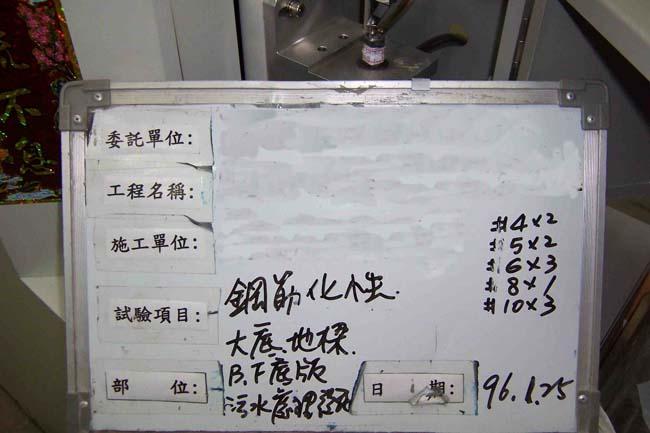 委託單位:
工程名稱:
施工單位:
#4×2
#5×2
#6×3
#8×1
#10×3
試驗項目: 鋼筋化性.
大底.地樑.
部 位: B.下底版
污水處理
日 期: 96.1.25